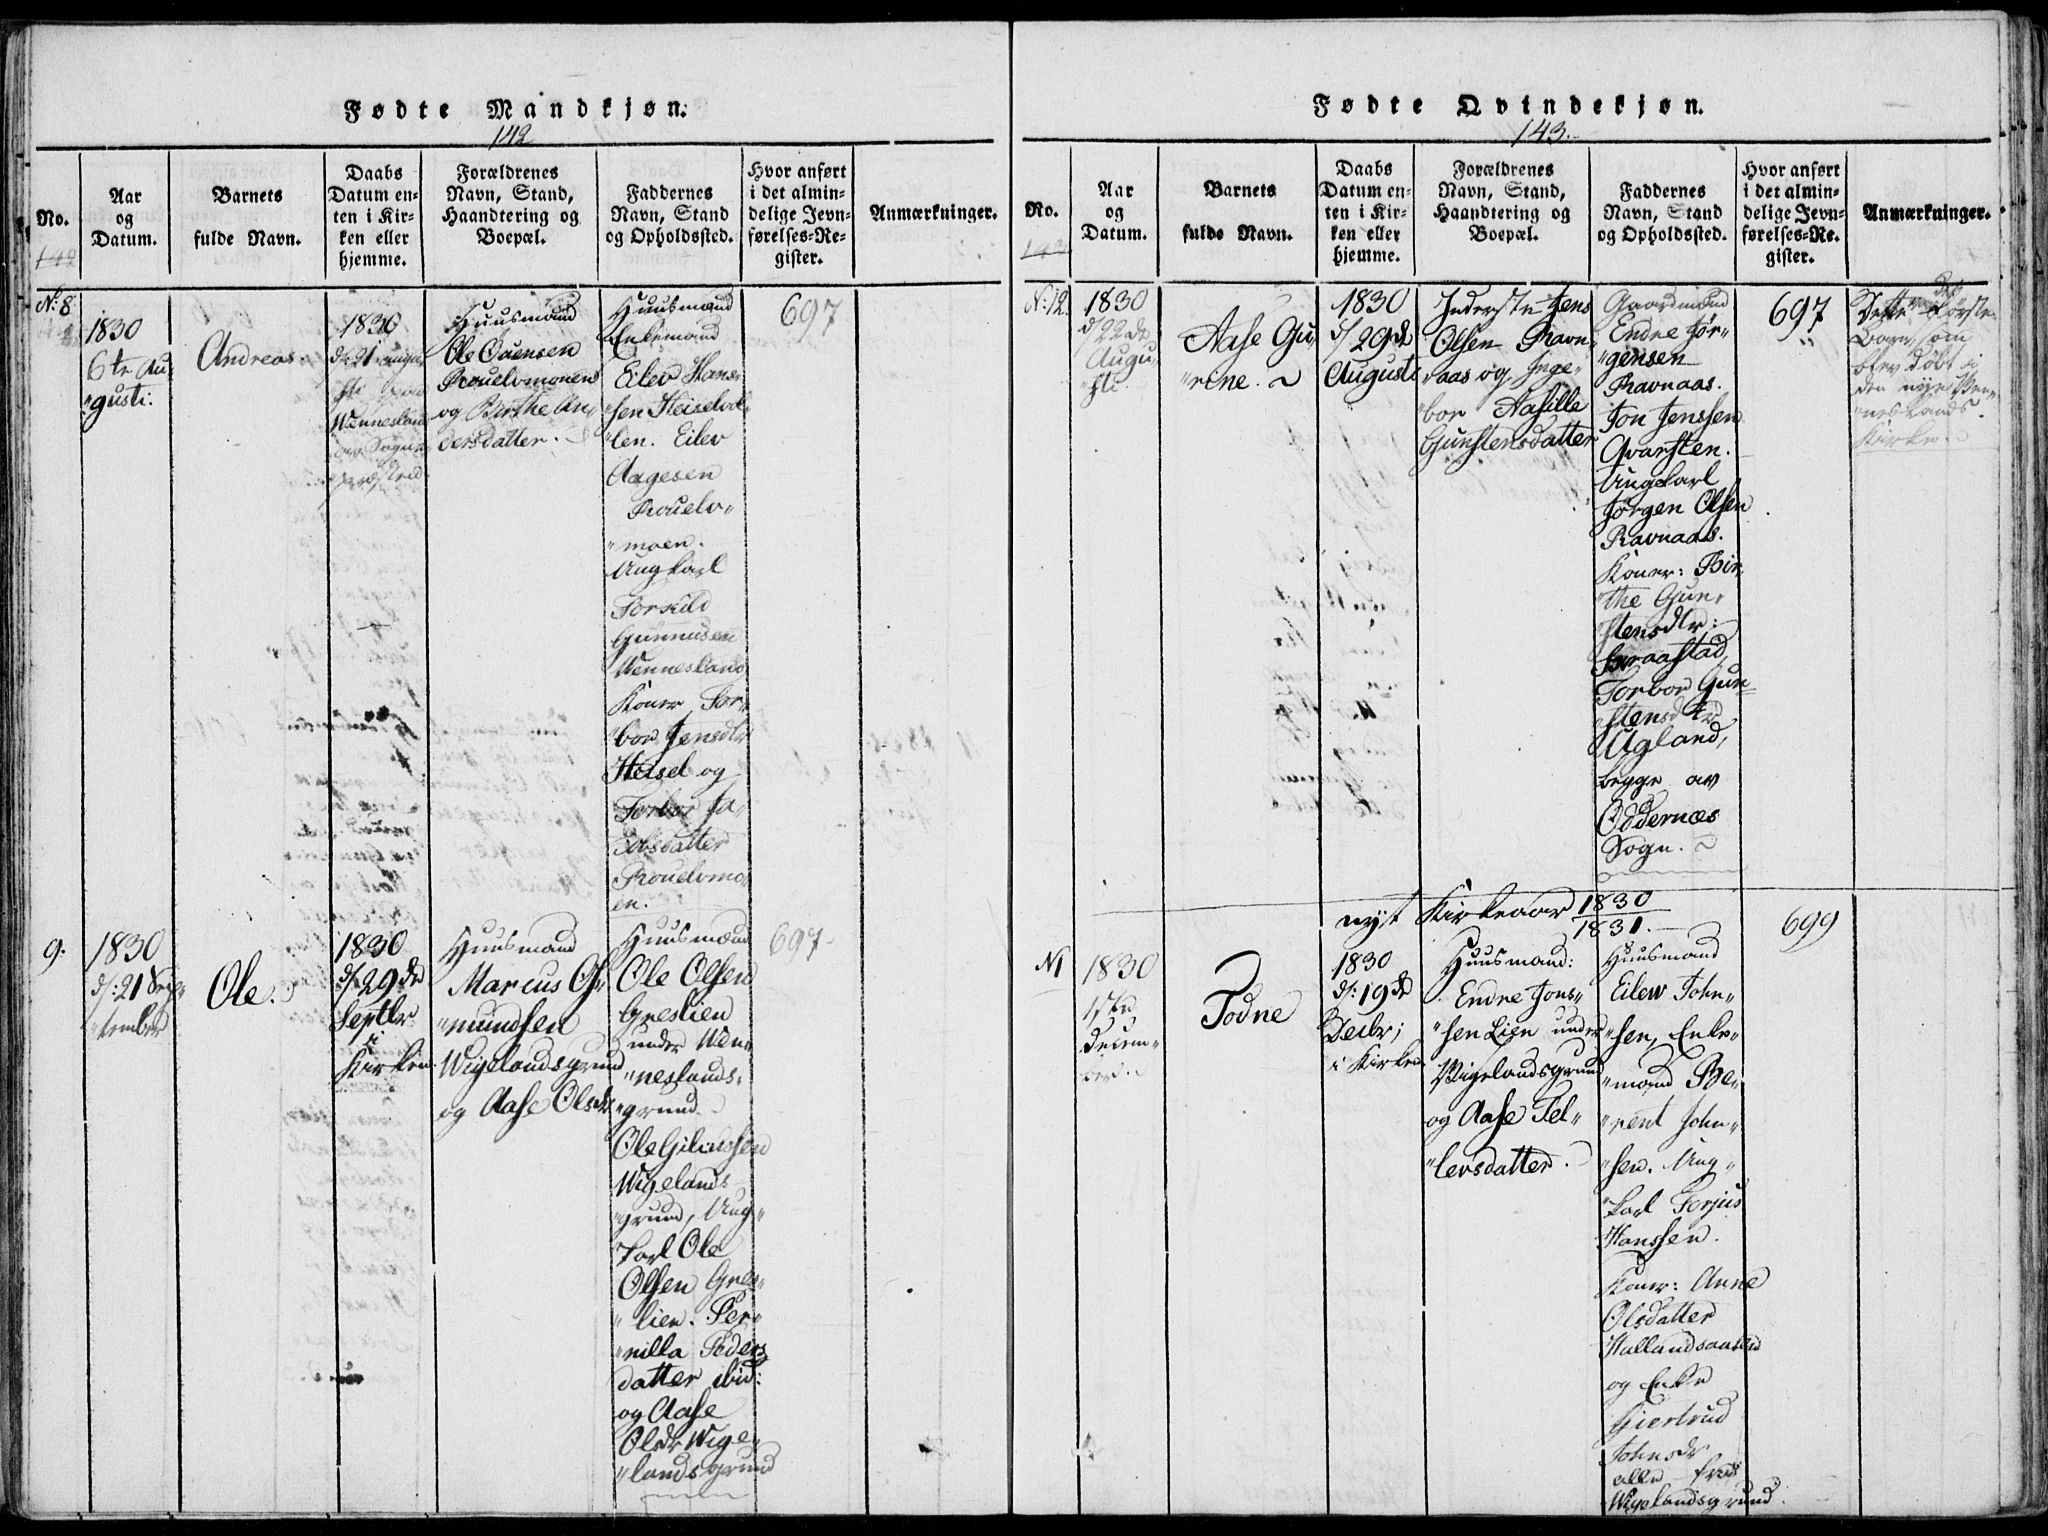 Fødte Mandkjøn.
142
No.
Aar
og
Datum.
Barnets
fulde Navn.
Daabs
Datum en-
ten i Kir-
ken eller
hjemme.
Forældrenes
Navn, Stand,
Haandtering og
Boepæl.
Faddernes
Navn, Stand
og Opholdssted.
Hvor anført
i det almin-
delige Jevn-
førelses-Re-
gister.
Anmærkninger.
No: 8
1830
6te Au
"gusti.
Andreas
1830
d: 21
Wennesland
av Sogne-
præsten
Huusmand
Ole Ouensen
Rouelvmonen
og Birthe An-
dersdatter.
Huusmænd
Enkemand
Eilev Hans-
"sen Heiselvel-
"len. Eilev
Aagesen
Rouelv-
"moen.
Ungkarl
Torkild
Gunnusen
Wennesland
Koner, Tor-
"bor Jensdtr
Heisel og
Torbor Ja-
cobsdatter
Rouelvmo-
en.
697
9.
1830
d: 21 Sep-
"tember
Ole.
1830
d/29de
Septbr
i
Kirken.
Huusmand
Marcus Os-
"mundsen
Wigelandsgrund
og Aase Olsdtr
Huusmænd
Ole Olsen
Greslien
under Wen-
"neslands-
"grund.
Ole Giliussen
Wigelands
"grund, Ung-
"karl Ole
Olsen Gres-
"lien. Per-
"nilla Peders
datter ibid:
og Aase
Olsdtr Wige-
"landsgrund
697-
Fødte Qvindekjøn.
143.
No.
143
Aar
og
Datum.
Barnets
fulde Navn.
Daabs
Datum en-
ten i Kir-
ken eller
hjemme.
Forældrenes
Navn, Stand,
Haandtering og
Boepæl.
Faddernes
Navn, Stand
og Opholdssted.
Hvor anført
i det almin-
delige Jevn-
førelses-Re-
gister.
Anmærkninger.
No: 12.
1830
d/22de
Augu-
"sti
Aase Gu-
"rine.
1830
d/29de
Augusti
Inderste Jens
Olsen Ravn-
"aas og Inge-
"bor Aasille
Gunstensdatter
Gaardmænd
Endre Jør-
"gensen
Ravnaas.
Jon Jenssen
Qvarsten.
Ungkarl
Jørgen Olsen
Ravnaas.
Koner: Bir-
"the Gun-
"stensdtr:
Braastad,
Torbor Gun-
"stensdtr
Ugland,
begge av
Oddernæs
Sogn.
697
Dette var det
første
Barn, som
blev døbt i
den nye Wen-
"neslands
Kirke.
nyt Kirkeaar 1830
1831.
N1
1830
1ste
Decem-
"ber.
Todne
1830
d: 19de
Decbr;
i Kirken
Huusmand:
Endre Jons-
"sen Lien under
Wigelandsgrund
og Aase Tel-
"levsdatter.
Huusmænd
Eilew John-
"sen, Enke-
"mand Be-
"rent John-
"sen. Ung-
"karl Torjus
Hanssen.
Koner: Anne
Olsdatter
Hallandsaasen
og Enke
Giertrud
Johnsdr
alle fra
Wigelandsgrund.
699